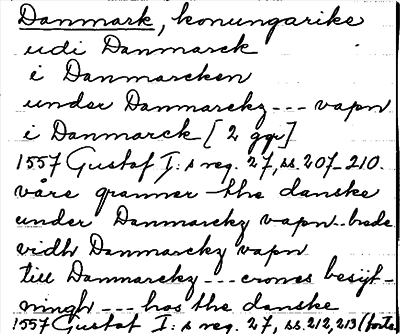 Danmark, konungarike
udi Danmarck
i Danmarcken
under Danmarckz --- vapn
i Danmarck [2 ggr]
1557 Gustaf I:s reg. 27, ss. 207-210.
våre granner the danske
under Danmarckz vapn
vidh Danmarckz vapn
till Danmarckz --- crones besigt-
ningh --- hos the danske
1557 Gustaf I:s reg. 27, ss. 212, 213